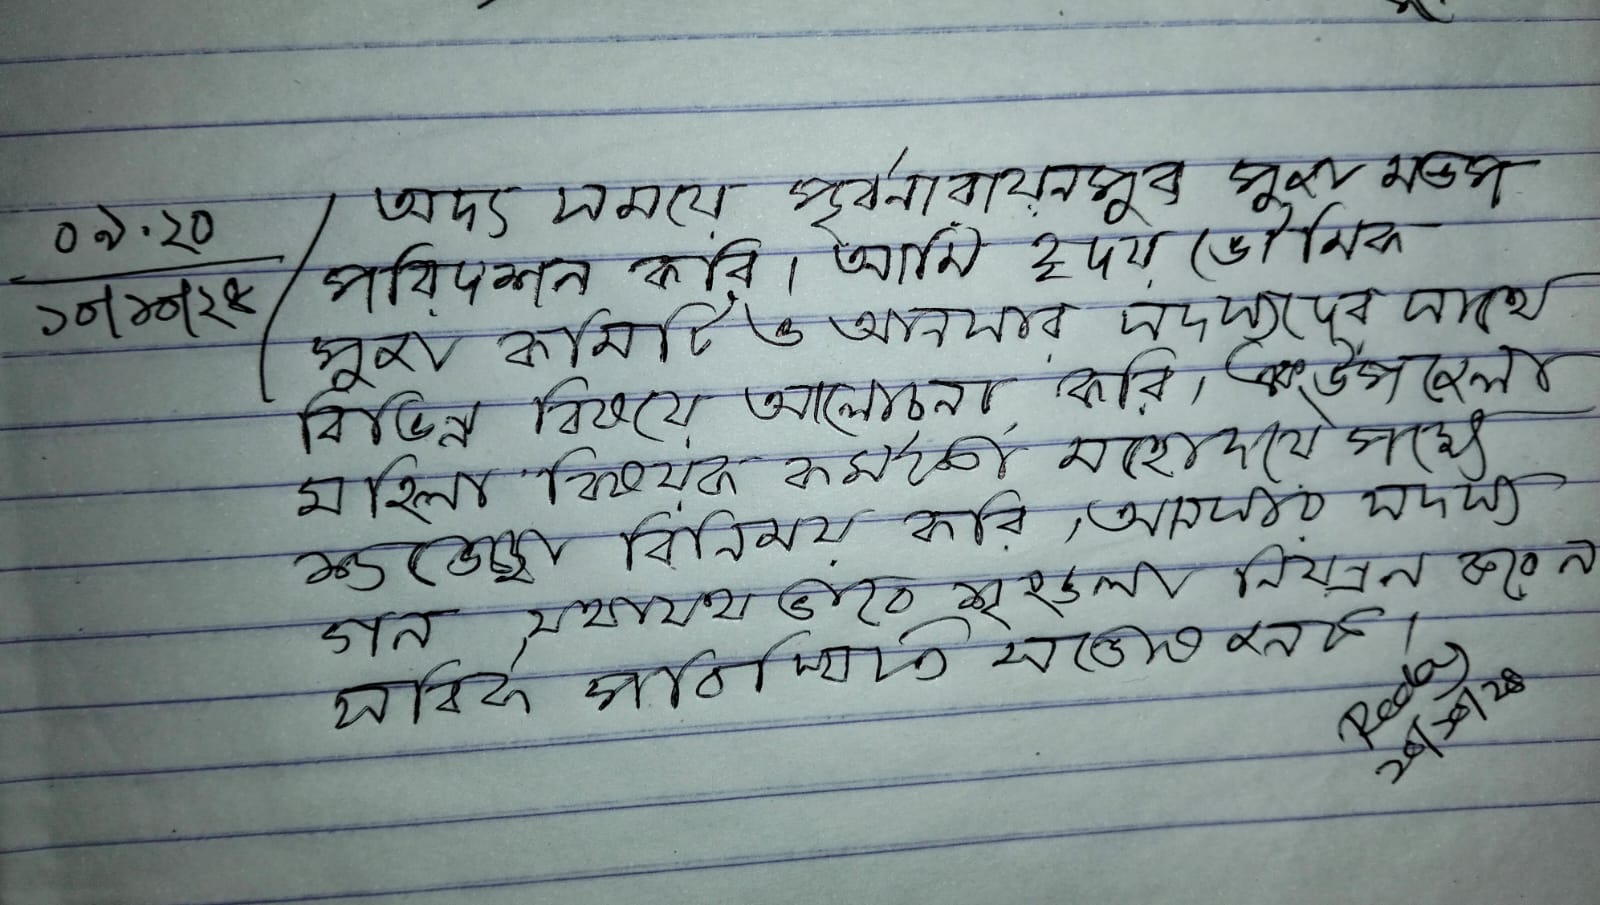 ০৯.২০
১০/১০/২৪
অদ্য সময়ে পূর্বনারায়নপুর পূজা মন্ডপ
পরিদর্শন করি। আমি হৃদয় ভৌমিক
পূজা কমিটি ও আনসার সদস্যদের সাথে
বিভিন্ন বিষয়ে আলোচনা করি। উপজেলা
মহিলা বিষয়ক কর্মকর্তা মহোদয়ের পক্ষে
শুভেচ্ছা বিনিময় করি, আনসার সদস্য
গন যথাযথ ভাবে শৃংঙ্খলা নিয়ন্ত্রন করেন
সার্বিক পরিস্থিতি সন্তোষ জনক।
১০/১০/২৪